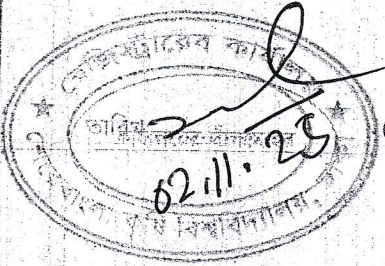 রেজিস্ট্রারের কার্যালয়
তারিখ
02.11.23
শেরেবাংলা কৃষি বিশ্ববিদ্যালয়, ঢাকা